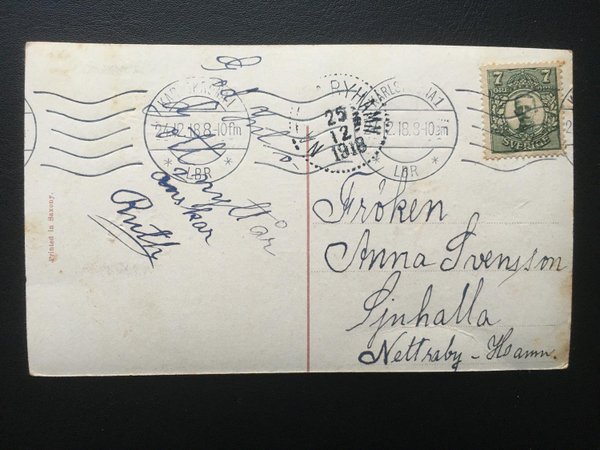 God Jul
o Gott
nytt År
önskar
Ruth
KARLSKRONA 1
24.12.18.8-10fm
* LBR *
25
12
1918
KARLSKRONA 1
12.18.8-10fm
* LBR *
7
SVERIGE
Fröken
Anna Svensson
Sjuhalla
Nettraby-Hamn.
Printed in Saxony.